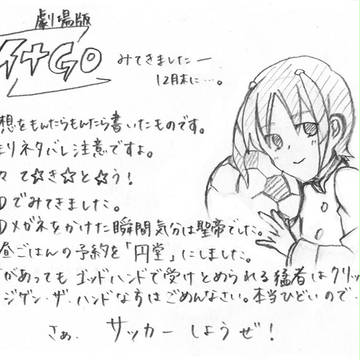 劇場版
イナGO
みてきましたー
12月末に…。
想をもんたらもんたら書いたものです。
リネタバレ注意ですよ。
々 て☆き☆と☆う!
Dでみてきました。
Dメガネをかけた瞬間気分は聖帝でした。
昼ごはんの予約を「円堂」にしました。
があってもゴッドハンドで受けとめられる猛者はクリッ
ジゲン・ザ・ハンドな方はごめんなさい。本当ひどいので、
さぁ、サッカーしようぜ!